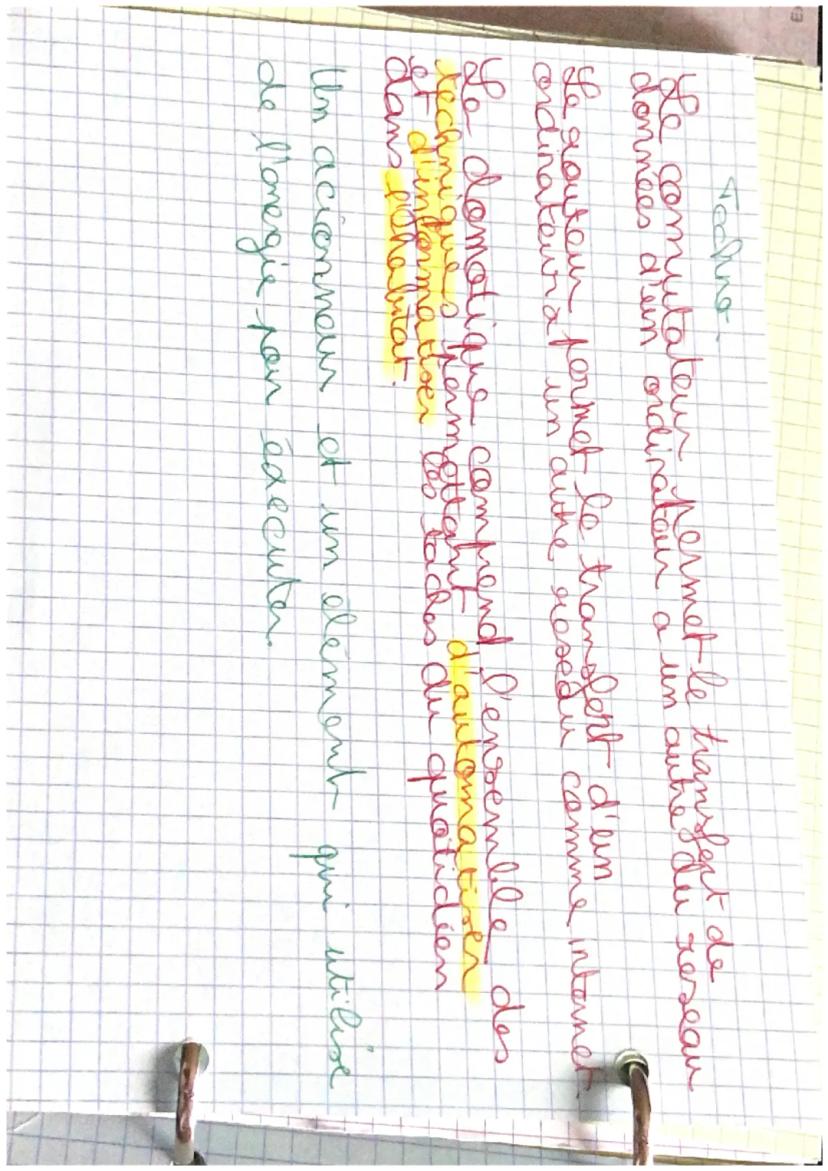 Techno.
Le comutateur permet le transfert de
données d'un ordinateur a un autre du reseau
Le routeur permet le transfert d'un
ordinateur a un autre reseau comme internet.
La domotique comprend l'ensemble des
techniques permettant d'automatiser
et d'informatiser les taches du quotidien
dans l'habitat.
Un acionneur et un élément qui utilise
de l'energie pour éxecuter.